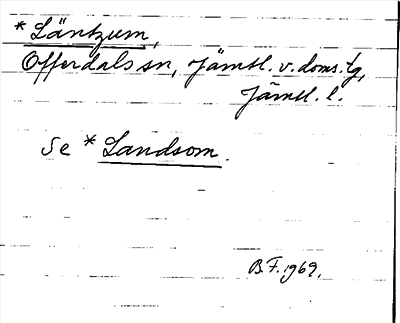 * Läntzum,
Offerdals sn, Jämtl. v. doms. tg,
Jämtl. l.
Se * Landsom.
B.F. 1969.